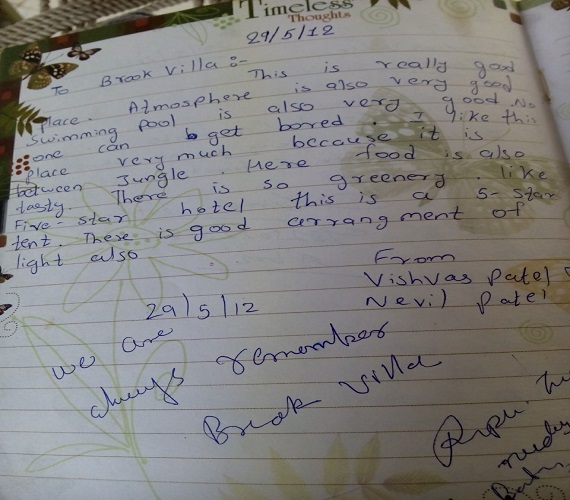 Timeless
Thoughts
29/5/12
To Brook Villa :-
This is really good
place. Atmosphere is also very good
Swimming pool is also very good. No
one can get bored. I like this
place very much because it is
between Jungle. Here food is also
tasty. There is so greenery. like
Five-star hotel this is a 5-star
tent. There is good arrangment of
light also
From
Vishvas Patel
Nevil Patel
29/5/12
we are
always remember
Brook Villa